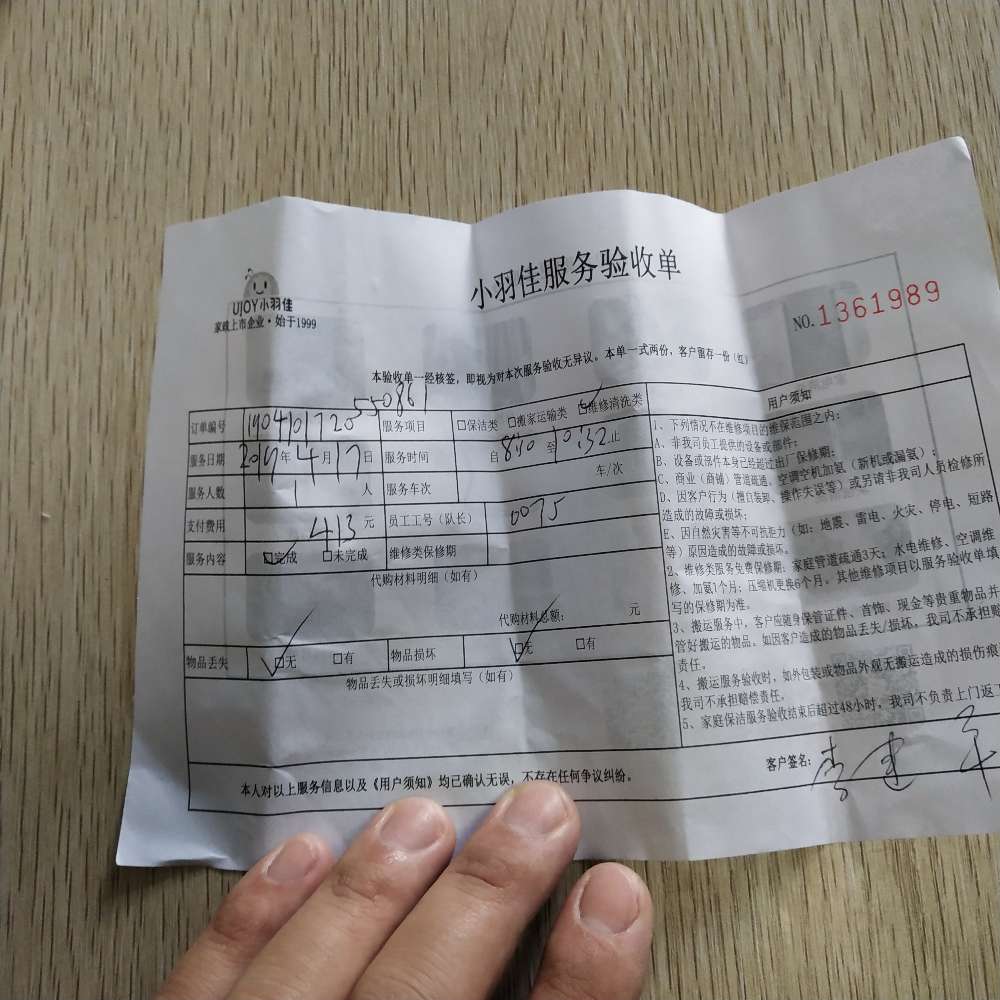 UJOY小羽佳
家政上市企业·始于1999
小羽佳服务验收单
NO.1361989
本验收单一经核签，即视为对本次服务验收无异议。本单一式两份，客户留存一份（红）
订单编号 190401720550861 服务项目 □保洁类 □搬家运输类 □维修清洗类
服务日期 2019年4月17日 服务时间 自8:40至10:32止
服务人数 1人 服务车次 车/次
支付费用 413元 员工工号（队长） 0075
服务内容 □完成 □未完成 维修类保修期
代购材料明细（如有）
代购材料总额： 元
物品丢失 □无 □有 物品损坏 □无 □有
物品丢失或损坏明细填写（如有）
用户须知
1、下列情况不在维修项目的维保范围之内：
A、非我司员工提供的设备或部件；
B、设备或部件本身已经超过出厂保修期；
C、商业（商铺）管道疏通、空调空机加氨（新机或漏氨）；
D、因客户行为（擅自装卸、操作失误等）或另请非我司人员检修所
造成的故障或损坏；
E、因自然灾害等不可抗拒力（如：地震、雷电、火灾、停电、短路
等）原因造成的故障或损坏。
2、维修类服务免费保修期：家庭管道疏通3天；水电维修、空调维
修、加氨1个月；压缩机更换6个月。其他维修项目以服务验收单填
写的保修期为准。
3、搬运服务中，客户应随身保管证件、首饰、现金等贵重物品并
管好搬运的物品。如因客户造成的物品丢失/损坏，我司不承担赔
责任。
4、搬运服务验收时，如外包装或物品外观无搬运造成的损伤痕
我司不承担赔偿责任。
5、家庭保洁服务验收结束后超过48小时，我司不负责上门返工
本人对以上服务信息以及《用户须知》均已确认无误，不存在任何争议纠纷。
客户签名：